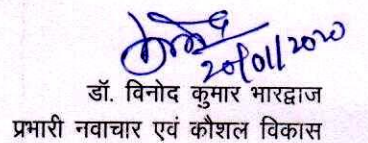 20/01/2020
डॉ. विनोद कुमार भारद्वाज
प्रभारी नवाचार एवं कौशल विकास